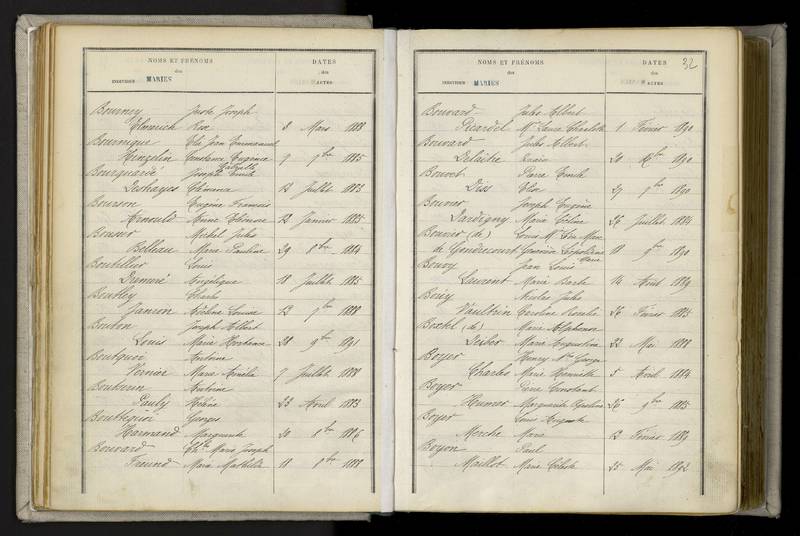 NOMS ET PRÉNOMS
des
INDIVIDUS MARIÉS
DATES
des
ACTES
Bourney Juste Joseph
Elmerich Rose 8 Mars 1888
Bournique
Hinzelin Constance Eugénie 9 7bre 1885
Gabrielle
Bourguarie Joseph Emile
Deshayes 12 Juillet 1883
Bourson Eugène François
Arnould 12 Janvier 1885
Bouser Michel Jules
Belleau Marie Pauline 29 8bre 1884
Boutillier Louis
Angélique 18 Juillet 1885
Boutley Charles
Janson Louise 13 9bre 1888
Bouton Joseph Albert
Louis Marie Hortense 28 9bre 1891
Boutquoi Antoine
Vernier Marie Amélie 7 Juillet 1888
Antoine
Pauly Hélène 23 Avril 1883
Georges
Harmand Marguerite 20 8bre 1886
Bouvard Marie Joseph
Freund Marie Mathilde 18 8bre 1888
32
NOMS ET PRÉNOMS
des
INDIVIDUS MARIÉS
DATES
des
ACTES
Bouvard Jules Albert
Picardel Laure Charlotte 1 Février 1890
Bouvard Jules Albert
Delaitre 20 1890
Bouvet Pierre Emile
Diss 27 9bre 1890
Bouvier Joseph Eugène
Dardigny Marie Céline 26 Juillet 1884
Bouvier (de) Louis
de Gondrecourt Léopoldine 18 9bre 1890
Marie
Bouvy Jean Louis
Laurent Marie Barbe 14 Août 1889
Nicolas Jules
Vaultrin Caroline Rosalie 26 Février 1885
Boxtel (de) Marie Alphonse
Marie Augustine 22 Mai 1888
Boyer Henry George
Charles Marie Henriette 5 Avril 1884
Boyer Pierre Constant
Humer Marguerite Caroline 26 9bre 1885
Boyer Louis Auguste
Merche Marie 12 Février 1889
Boyon Paul
Maillot Marie Céleste 25 Mai 1892